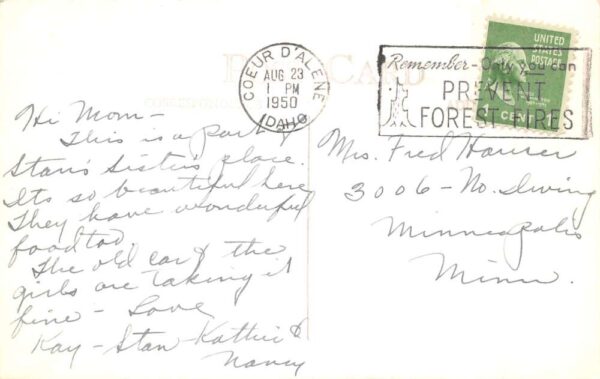 POST CARD
COEUR D'ALENE
AUG 23
1 PM
1950
IDAHO
Remember-Only you can
PREVENT
FOREST FIRES
UNITED
STATES
POSTAGE
1 CENT
CORRESPONDENCE
Hi Mom-
This is a part of
Stan's Sister's place.
Its so beautiful here
They have wonderful
food too.
The old car & the
girls are taking it
fine - Love
Kay - Stan - Kathie &
Nancy
Mrs. Fred Hauser
3006 - No. Irving
Minneapolis
Minn.